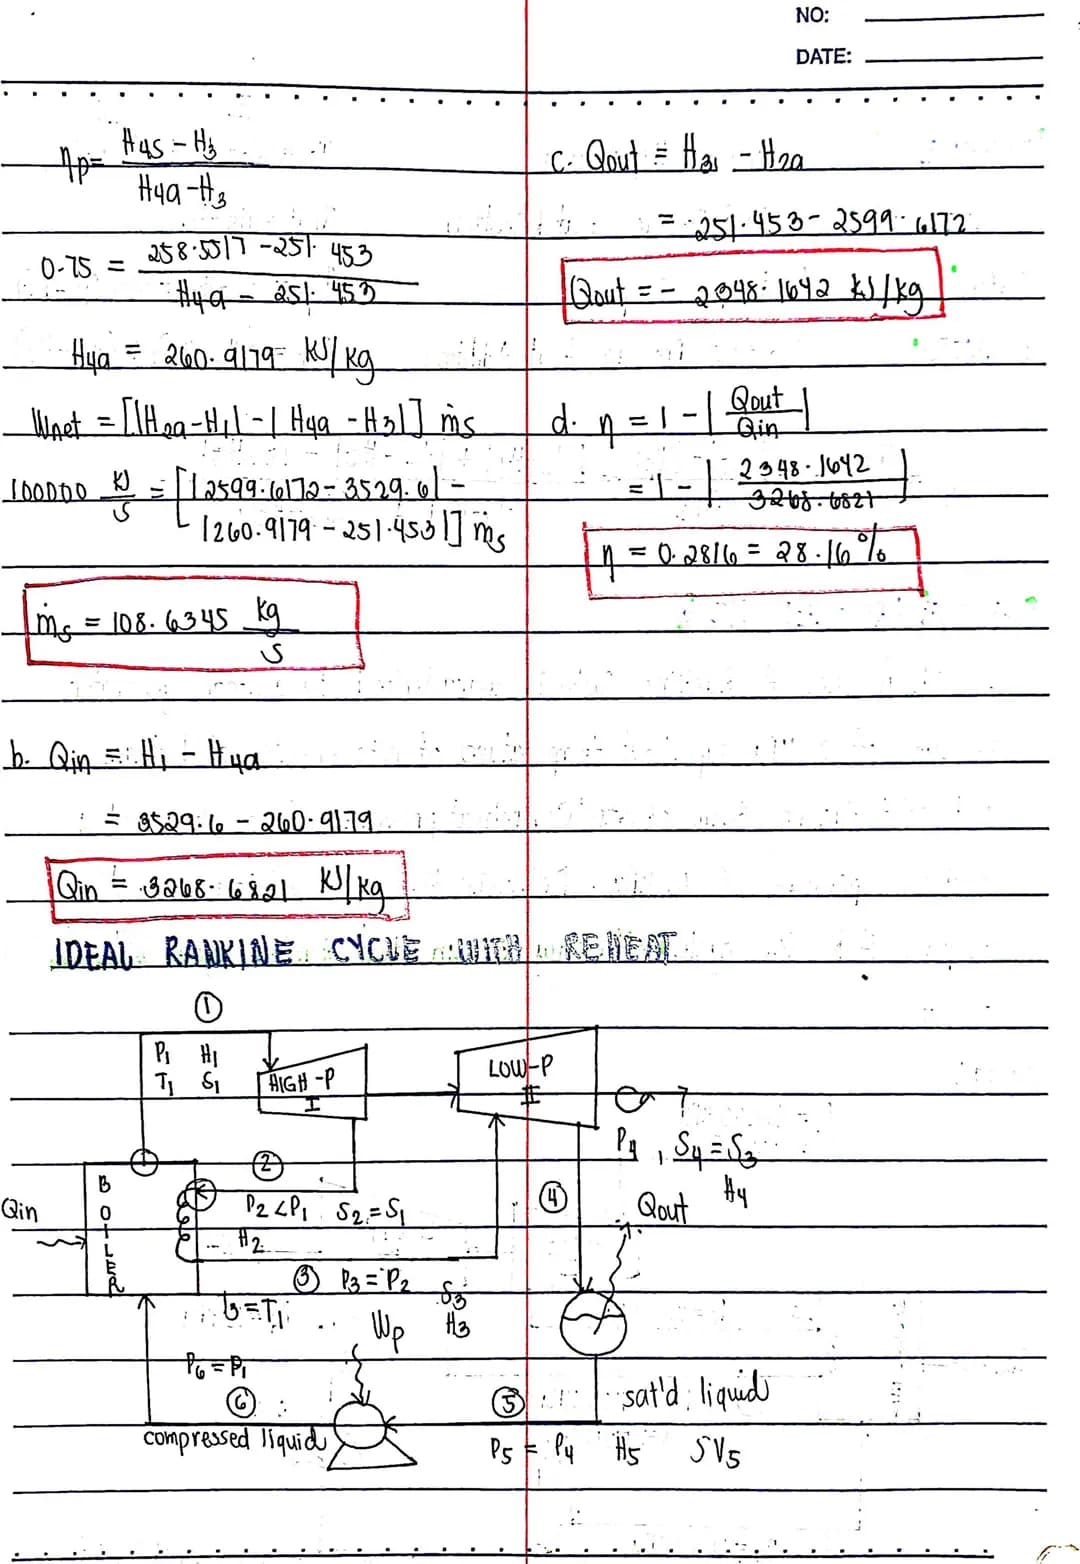 NO:
DATE:
ηp = H4s - H3 / H4a - H3
0.75 = 258.5517 - 251.453 / H4a - 251.453
H4a = 260.9179 kJ/kg
Wnet = [|H2a - H1| - |H4a - H3|] ṁs
100000 kJ/s = [|2599.6172 - 3529.6| -
|260.9179 - 251.453|] ṁs
ṁs = 108.6345 kg/s
b. Qin = H1 - H4a
= 3529.6 - 260.9179
Qin = 3268.6821 kJ/kg
c. Qout = H3 - H2a
= 251.453 - 2599.6172
Qout = - 2348.1642 kJ/kg
d. η = 1 - |Qout / Qin|
= 1 - |2348.1642 / 3268.6821|
η = 0.2816 = 28.16%
IDEAL RANKINE CYCLE WITH REHEAT
①
P1 H1
T1 S1
HIGH-P
I
LOW-P
II
P4, S4 = S3
H4
②
P2 < P1 S2 = S1
H2
BOILER
Qin
④
Qout
③ P3 = P2 S3
H3
t3 = T1
Wp
P6 = P1
⑥
compressed liquid
⑤
sat'd liquid
P5 = P4 H5 SV5